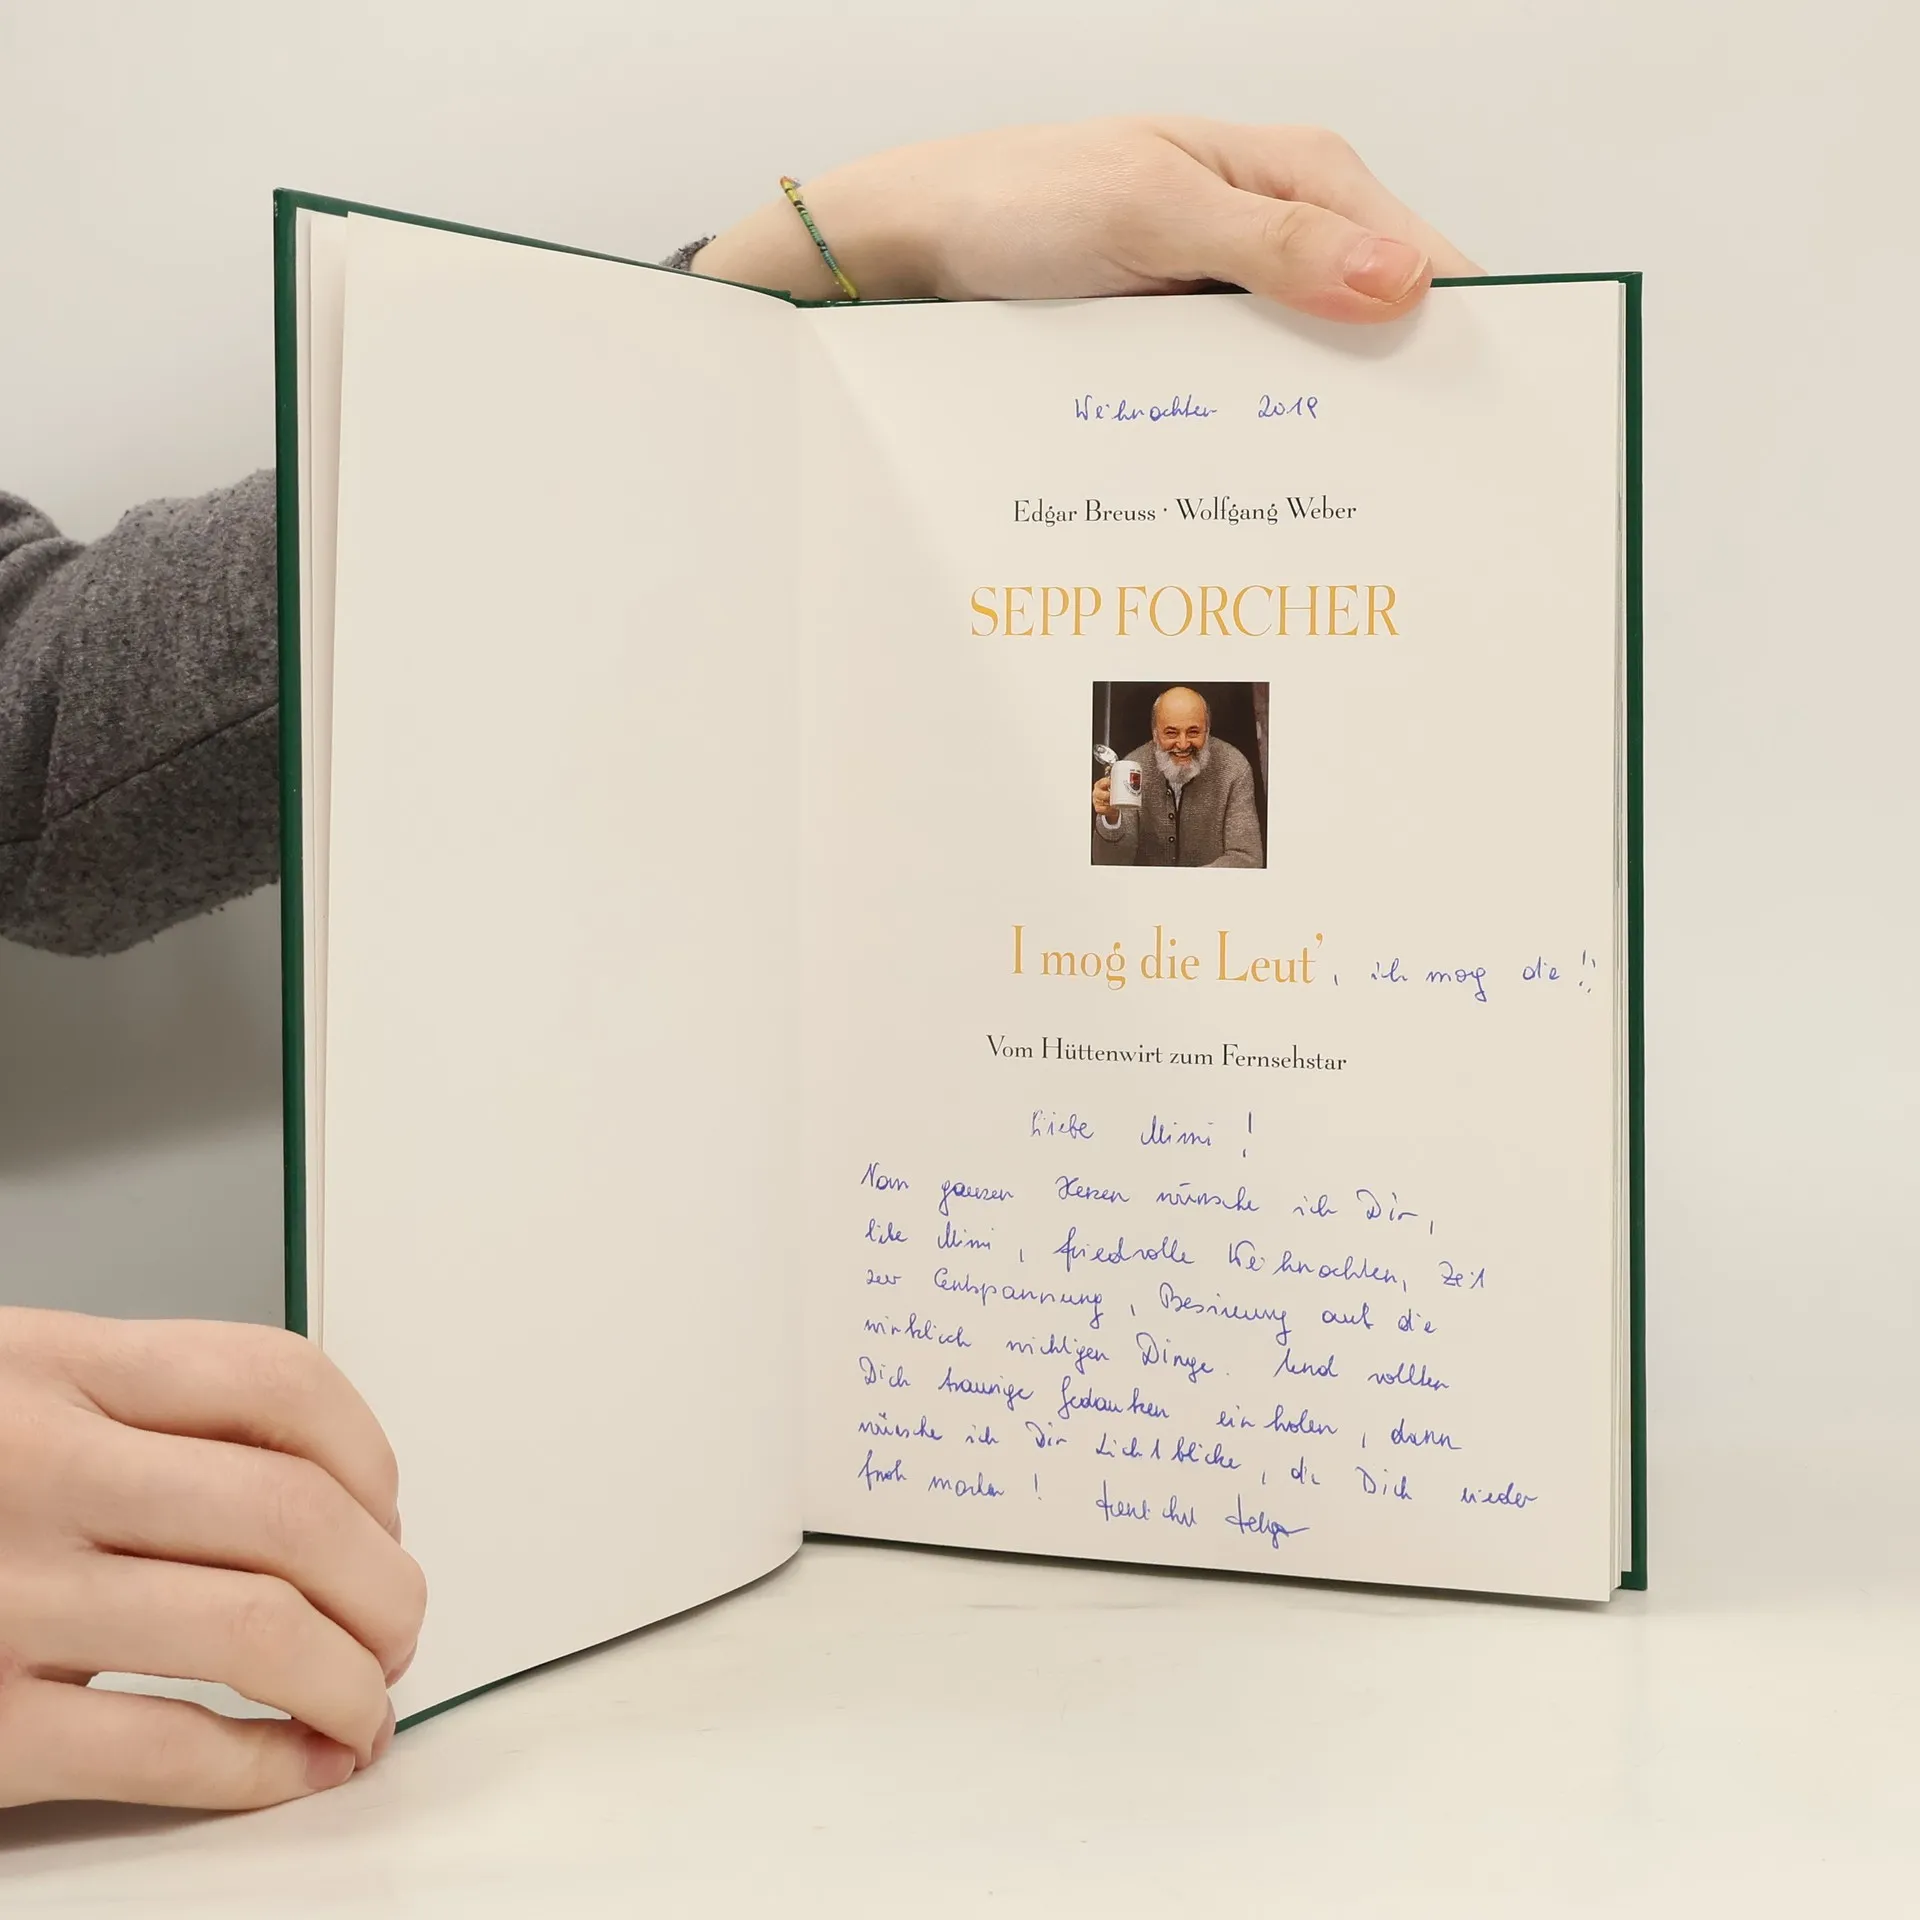 Weihnachten 2019
Edgar Breuss · Wolfgang Weber
SEPP FORCHER
I mog die Leut', ich mog die !!
Vom Hüttenwirt zum Fernsehstar
Liebe Mimi !
Von ganzen Herzen wünsche ich Dir,
liebe Mimi, friedvolle Weihnachten, Zeit
zur Entspannung, Besinnung auf die
wirklich wichtigen Dinge. Und sollten
Dich traurige Gedanken einholen, dann
wünsche ich Dir Lichtblicke, die Dich wieder
froh machen !